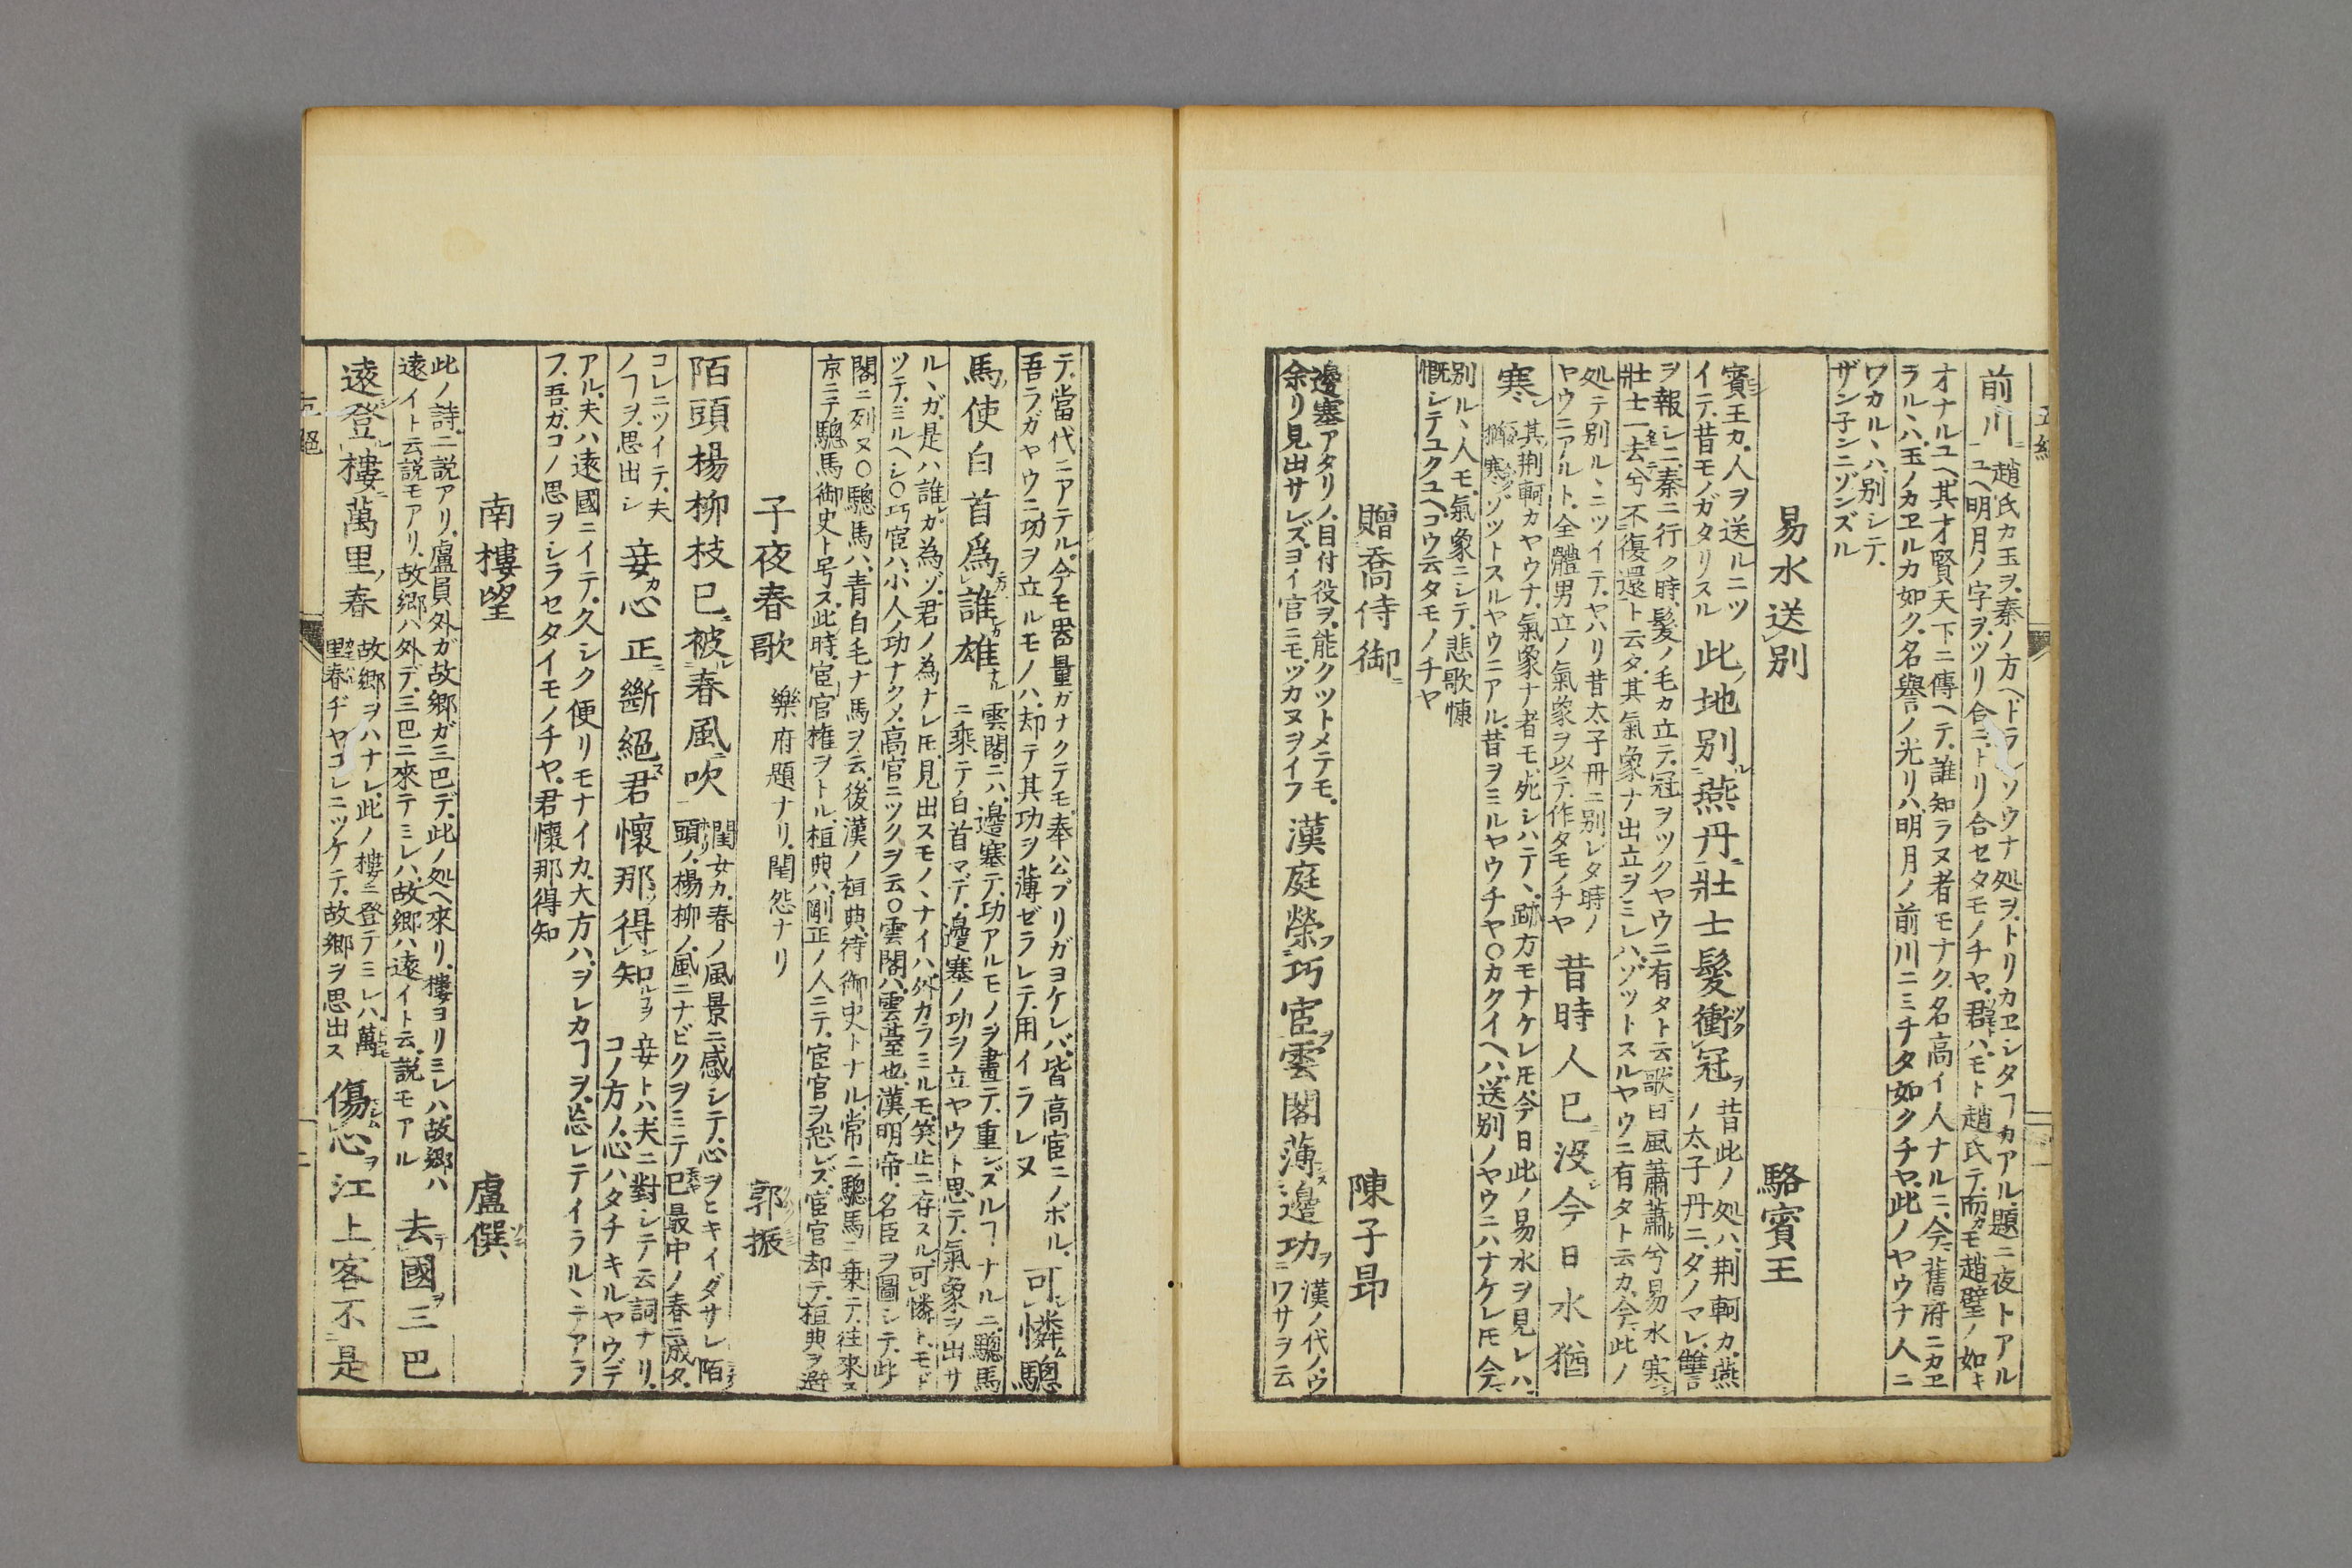 前川 趙氏カ玉ヲ、秦ノ方ヘドラソウナ処ヲ、トリカヱシタヿカアル、題ニ夜トアル
ユヘ、明月ノ字ヲ、ツリ合ニトリ合セタモノチヤ、君ハ、モト趙氏テ、而カモ趙璧ノ如キ
オナルユヘ、其才賢天下ニ傳ヘテ、誰知ラヌ者モナク、名高イ人ナルニ、今舊府ニカヱ
ラルヽハ、玉ノカヱルカ如ク、名譽ノ光リハ、明月ノ前川ニミチタ如クチヤ、此ノヤウナ人ニ
ワカルヽハ、別シテ、
ザン子ンニゾンズル
易水送別 駱賓王
賓王カ、人ヲ送ルニツ
イテ、昔モノガタリスル
此地別燕丹壯士髮衝冠
昔此ノ処ハ、荆軻カ、燕
ノ太子丹ニ、タノマレ、讐
ヲ報シニ、秦ニ行ク時、髮ノ毛カ立テ、冠ヲツクヤウニ有タト云、歌曰風蕭蕭兮易水寒
壯士一去兮不復還ト云タ、其氣象ナ出立ヲミレハ、ゾツトスルヤウニ有タト云カ、今此ノ
処テ別ルヽニツイテ、ヤハリ昔太子丹ニ別レタ時ノ
ヤウニアルト、全體男立ノ氣象ヲ以テ、作タモノチヤ
昔時人已沒今日水猶
寒
其荆軻カヤウナ、氣象ナ者モ、死シハテヽ、跡方モナケレモ、今日此ノ易水ヲ見レハ、
猶寒、ゾツトスルヤウニアル、昔ヲミルヤウチヤ〇カクイヘハ、送別ノヤウニハナケレモ、今
別ルヽ人モ、氣象ニシテ、悲歌慷
慨シテユクユヘ、コウ云タモノチヤ
贈喬侍御 陳子昂
邊塞アタリノ、目付役ヲ、能クツトメテモ、
余リ見出サレズ、ヨイ官ニモ、ツカヌヲイフ
漢庭榮巧宦雲閣薄邊功
漢ノ代ノ、ウ
ワサヲ云
テ、當代ニアテル、今モ器量ガナクテモ、奉公ブリガヨケレバ、皆高官ニノボル、
吾ラガヤウニ功ヲ立ルモノハ、却テ其功ヲ薄ゼラレテ、用イラレヌ
可憐驄
馬使白首爲誰雄
雲閣ニハ、邊塞テ、功アルモノヲ畫テ、重ンズルヿナルニ、驄馬
ニ乘テ白首マデ、邊塞ノ功ヲ立ヤウト思テ、氣象ヲ出サ
ルヽガ、是ハ誰ガ為ゾ、君ノ為ナレモ、見出スモノヽナイハ、外カラミルモ、笑止ニ存スル、可憐ト、モド
ツテ、ミルヘシ〇巧宦ハ、小人ノ功ナクメ、高官ニツクヲ云〇雲閣ハ、雲臺也、漢明帝、名臣ヲ圖シテ、此
閣ニ列ヌ〇驄馬ハ、青白毛ナ馬ヲ云、後漢ノ桓典、侍御史トナル、常ニ驄馬ニ乗テ、往來ス
京ニテ驄馬御史ト号ス、此時、宦官権ヲトル、桓典ハ、剛正ノ人ニテ、宦官ヲ恐レズ、宦官却テ、桓典ヲ避
子夜春歌 樂府題ナリ、閨怨ナリ 郭振
陌頭楊柳枝已被春風吹
閨女カ、春ノ風景ニ感シテ、心ヲヒキイダサレ、陌
頭ノ、楊柳ノ、風ニナビクヲミテ、已最中ノ春ニ成タ、
コレニツイテ、夫
ノヿヲ、思出シ
妾心正斷絕君懷那得知
妾トハ夫ニ對シテノ云詞ナリ、
コノ方ノ、心ハタチキルヤウデ
アル、夫ハ遠國ニイテ、久シク便リモナイカ、大方ハ、ヲレカヿヲ、忘レテイラルヽテアラ
フ、吾ガ、コノ思ヲシラセタイモノチヤ、君懷那得知
南樓望 盧僎
此ノ詩、二説アリ、盧員外ガ故鄉ガ三巴デ、此ノ処ヘ來リ、樓ヨリミレハ、故鄉ハ
遠イト云説モアリ、故鄉ハ外デ、三巴ニ來テミレハ、故鄉ハ遠イト云、説モアル
去國三巴
遠登樓萬里春
故鄉ヲハナレ、此ノ樓ニ登テミレハ、萬
里春ヂヤ、コレニツケテ、故鄉ヲ思出ス
傷心江上客不是